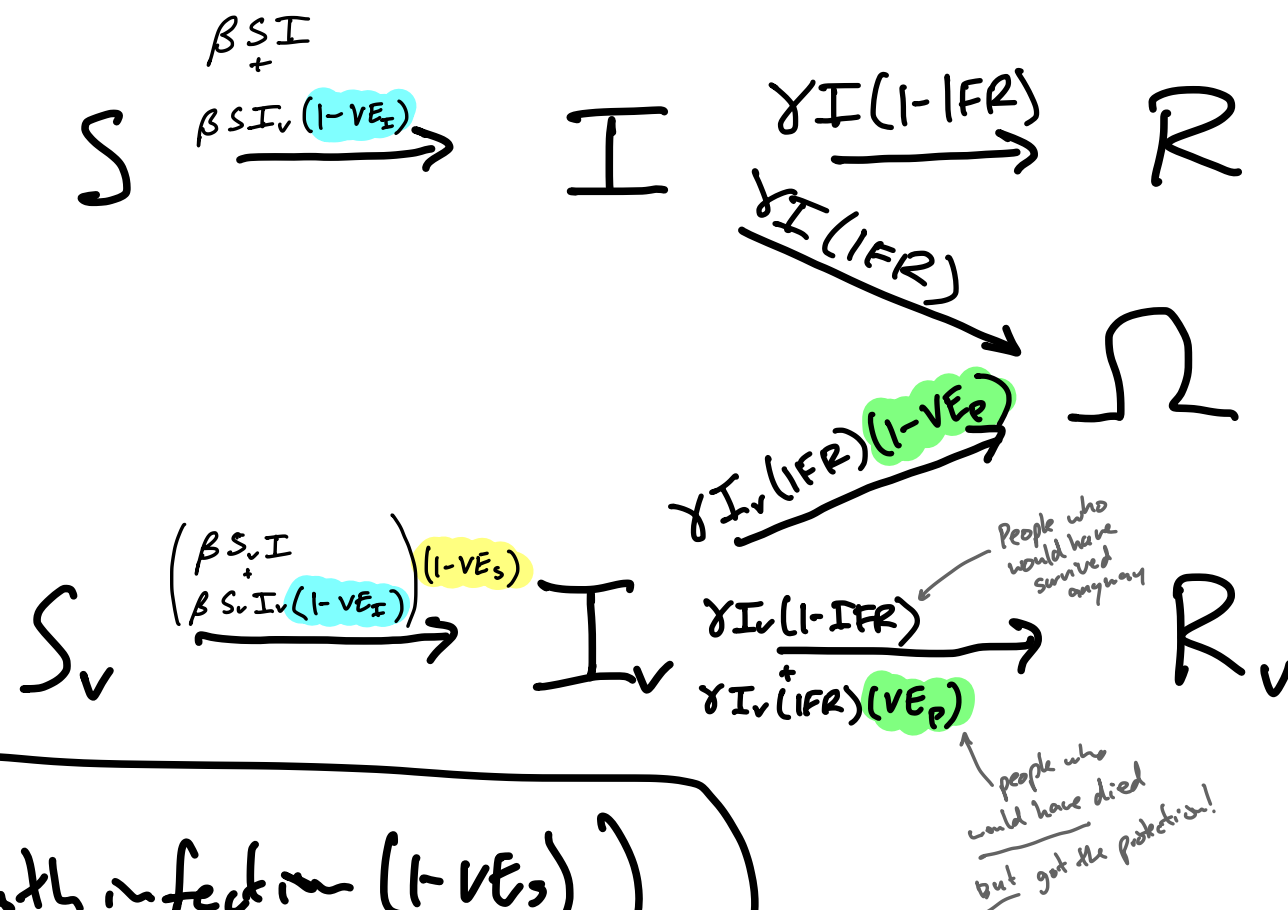 βSI
+
βSI_v (1-VE_I)
S
I
γI(1-IFR)
R
γI(IFR)
Ω
γI_v(IFR)(1-VE_P)
(βS_vI
+
βS_vI_v(1-VE_I)) (1-VE_S)
S_v
I_v
γI_v(1-IFR)
+
γI_v(IFR)(VE_P)
R_v
People who
would have
survived
anyway
people who
would have died
but got the protection!
th infection (1-VE_S))